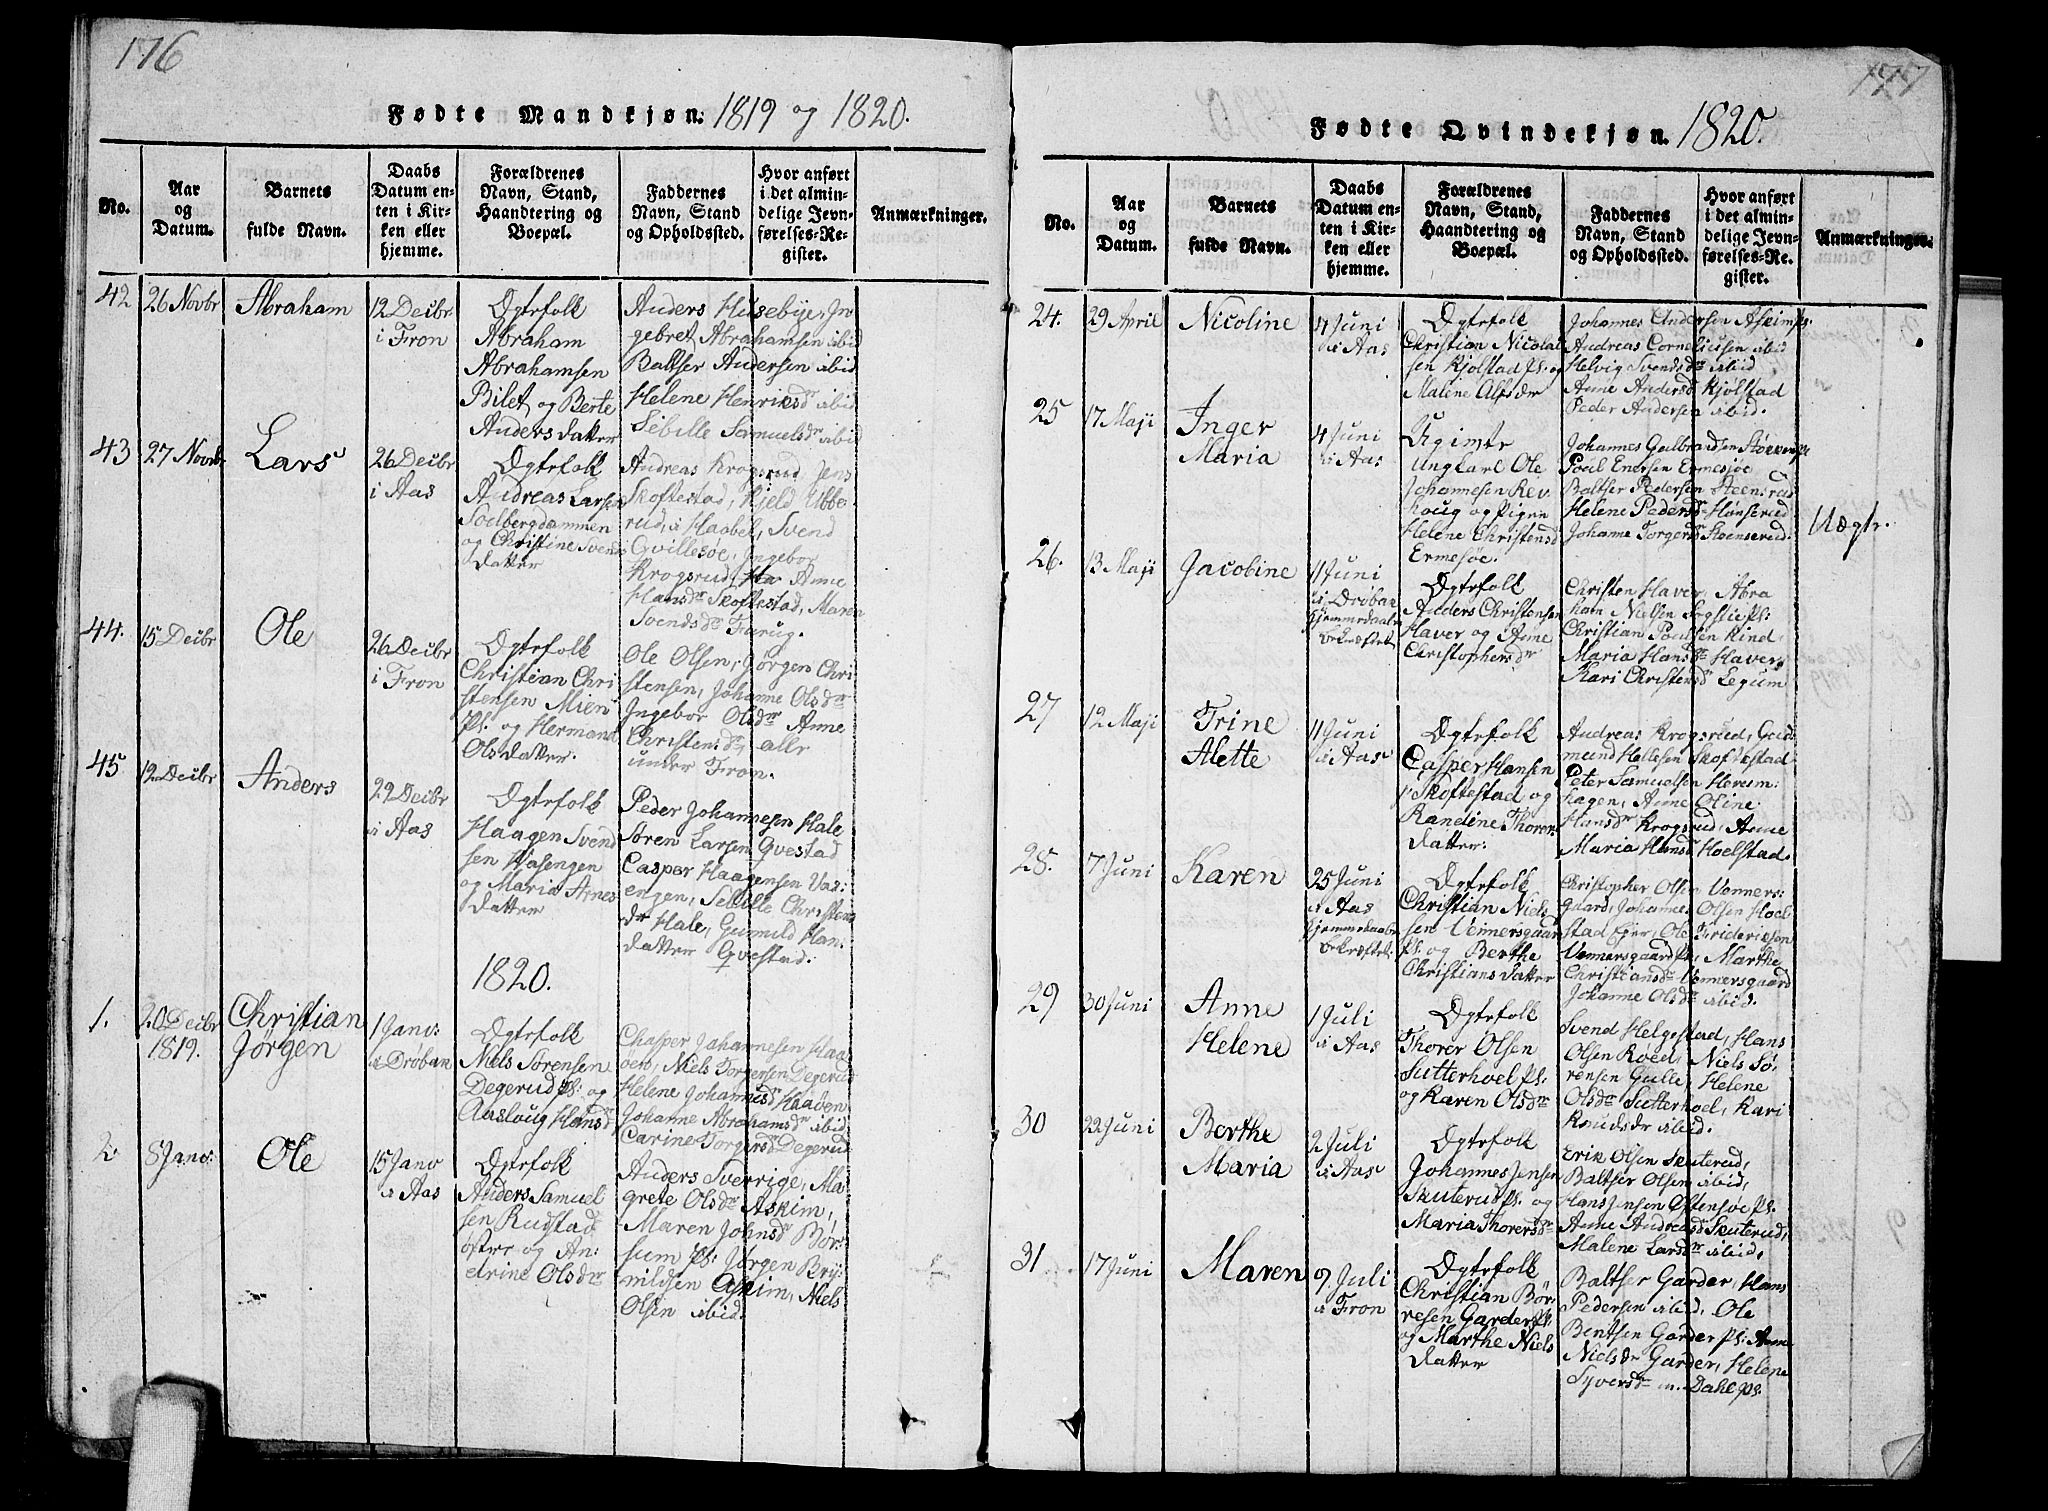 176
Fødte Mandkjøn. 1819 og 1820.
No.
Aar
og
Datum.
Barnets
fulde Navn.
Daabs
Datum en-
ten i Kir-
ken eller
hjemme.
Forældrenes
Navn, Stand,
Haandtering og
Boepæl.
Faddernes
Navn, Stand
og Opholdssted.
Hvor anført
i det almin-
delige Jevn-
førelses-Re-
gister.
Anmærkninger.
42
26 Novbr
Abraham
12 Decbr
i Fron
Ægtefolk
Abraham
Abrahamsen
Bilet og Berte
Andersdatter
Anders Husebye, In
gebret Abrahamsen ibid
Baltser Andersen ibid
Helene Henriksdr ibid
Sebille Samuelsdr ibid
43
27 Novbr
Lars
26 Decbr
i Aas
Ægtefolk
Andreas Larsen
Sodbergdammen
og Christine Svends
datter
Andreas Krogsrud, Jens
Skoftestad, Kjeld Ubbe
rud, i Haabel, Svend
Qvillesøe, Ingebor
Krogsrud, Anne
Hansdr Skoftestad, Maren
Svendsdr Farug.
44.
15 Decbr
Ole
26 Decbr
i Fron
Ægtefolk
Christian Chri
stensen Mien
Pl: og Hermana
Olsdatter.
Ole Olsen, Jørgen Chri
stensen, Johanne Olsdr
Ingebor Olsdr Anne
Christensdr, alle
under Fron.
45
12 Decbr
Anders
29 Decbr
i Aas
Ægtefolk
Haagen Svend
sen Vasengen
og Maria Arnes
datter
Peder Johannesen Hale
Søren Larsen Qvestad
Casper Haagensen Vas:
engen, Sebille Christens
dr Hale, Gunnild Han:
datter Qvestad.
1820.
1.
20 Decbr
1819.
Christian
Jørgen
1 Janv:
i Drøbak
Ægtefolk
Niels Sørensen
Degerud Pl: og
Aasloug Hansdr
Chasper Johannesen Haa
øen, Niels Torgersen Degerud
Helene Johannisdr Haaøen
Johanne Abrahamsdr ibid
Carine Torgersdr Degerud
2
8 Janv:
Ole
15 Janv
i Aas
Ægtefolk
Anders Samuel
sen Rudstad
østre og An:
drine Olsdr
Anders Sverrige, Ma
grete Olsdr Askim,
Maren Johnsdr Bør:
sum Pl: Jørgen Bry:
nildsen Askim, Niels
Olsen ibid.
177
Fødte Qvindekjøn. 1820.
No.
Aar
og
Datum.
Barnets
fulde Navn.
Daabs
Datum en-
ten i Kir-
ken eller
hjemme.
Forældrenes
Navn, Stand,
Haandtering og
Boepæl.
Faddernes
Navn, Stand
og Opholdssted.
Hvor anført
i det almin-
delige Jevn-
førelses-Re-
gister.
Anmærkninger.
24.
29 April
Nicoline
4 Juni
i Aas
Ægtefolk
Christian Nicolai
sen Kjølstad Pl: og
Malene Alfsdr
Johannes Andersen Askim Pl:
Andreas Corneliusen ibid
Helvig Svendsdr ibid
Anne Andersdr Kjølstad
Peder Andersen ibid.
25
17 Maji
Inger
Maria
4 Juni
i Aas
Ugivte
Ungkarl Ole
Johannesen Rev
houg og Pigen
Helene Christensdr
Ermesøe.
Johannes Gulbrandsen
Poul Enersen Ermesjøe
Baltser Pedersen Steensrud
Helene Pedersdr Honserud
Johanne Torgersdr Stenserud
Uægte.
26.
13 Maji
Jacobine
11 Juni
i Drøbak
hjemmedaaben
bekræftet
Ægtefolk
Anders Christensen
Haver og Anne
Christophersdr
Christen Haver, Abra
ham Nielsen Sogstie Pl:
Christian Poulsen Kind
Maria Hansdr Haver,
Kari Christensdr Legum
27
12 Maji
Trine
Alette
11 Juni
i Aas
Ægtefolk
Casper Hansen
Skoftestad og
Randine Thores
datter:
Andreas Krogsrud, Gud
mund Hellesen Skoftestad
Peter Samuelsen Herum:
hagen, Anne Oline
Hansdr Krogsrud, Anne
Maria Hansdr Hoelstad.
28.
7 Juni
Karen
25 Juni
i Aas
hjemmedaaben
bekræftet:
Ægtefolk
Christian Niel
sen Vennersgaard
Pl: og Berthe
Christiansdatter
Christopher Olsen Venners:
gaard, Johannes Olsen Hoel
stad Ejer, Ole Frideriksen
Vennersgaard Pl: Marthe
Christiansdr Vennersgaard
Johanne Olsdr ibid.
29
30 Juni
Anne
Helene
1 Juli
i Aas
Ægtefolk
Thorer Olsen
Sutterhoel Pl:
og Karen Olsdr
Svend Helgestad, Hans
Olsen Roed, Niels Sø
rensen Gulle, Helene
Olsdr Sutterhoel, Kari
Knudsdr ibid.
30
22 Juni
Berthe
Maria
2 Juli
i Aas
Ægtefolk
Johannes Jensen
Skuterud Pl: og
Maria Thorersdr
Erik Olsen Skuterud,
Baltser Olsen ibid,
Hans Jensen Østensjøe Pl:
Anne Andreasdr Skuterud,
Malene Larsdr ibid,
31
17 Juni
Maren
9 Juli
i Fron
Ægtefolk
Christian Bør:
resen Garder Pl:
og Marthe Niels
datter
Baltser Garder, Hans
Pedersen ibid, Ole
Bentsen Garder Pl: Anne
Nielsdr Garder, Helene
Syversdr Dahl Pl: